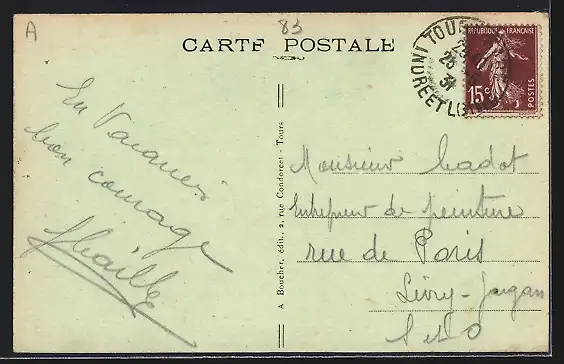 A
83
CARTE POSTALE
TOURS
INDRE ET LOIRE
REPUBLIQUE FRANÇAISE
15c
POSTES
En Vacances
bon courage
A Boucher, édit., 2, rue Condorcet - Tours
Monsieur Cadot
Entrepreneur de peinture
rue de Paris
Livry-Gargan
S et O